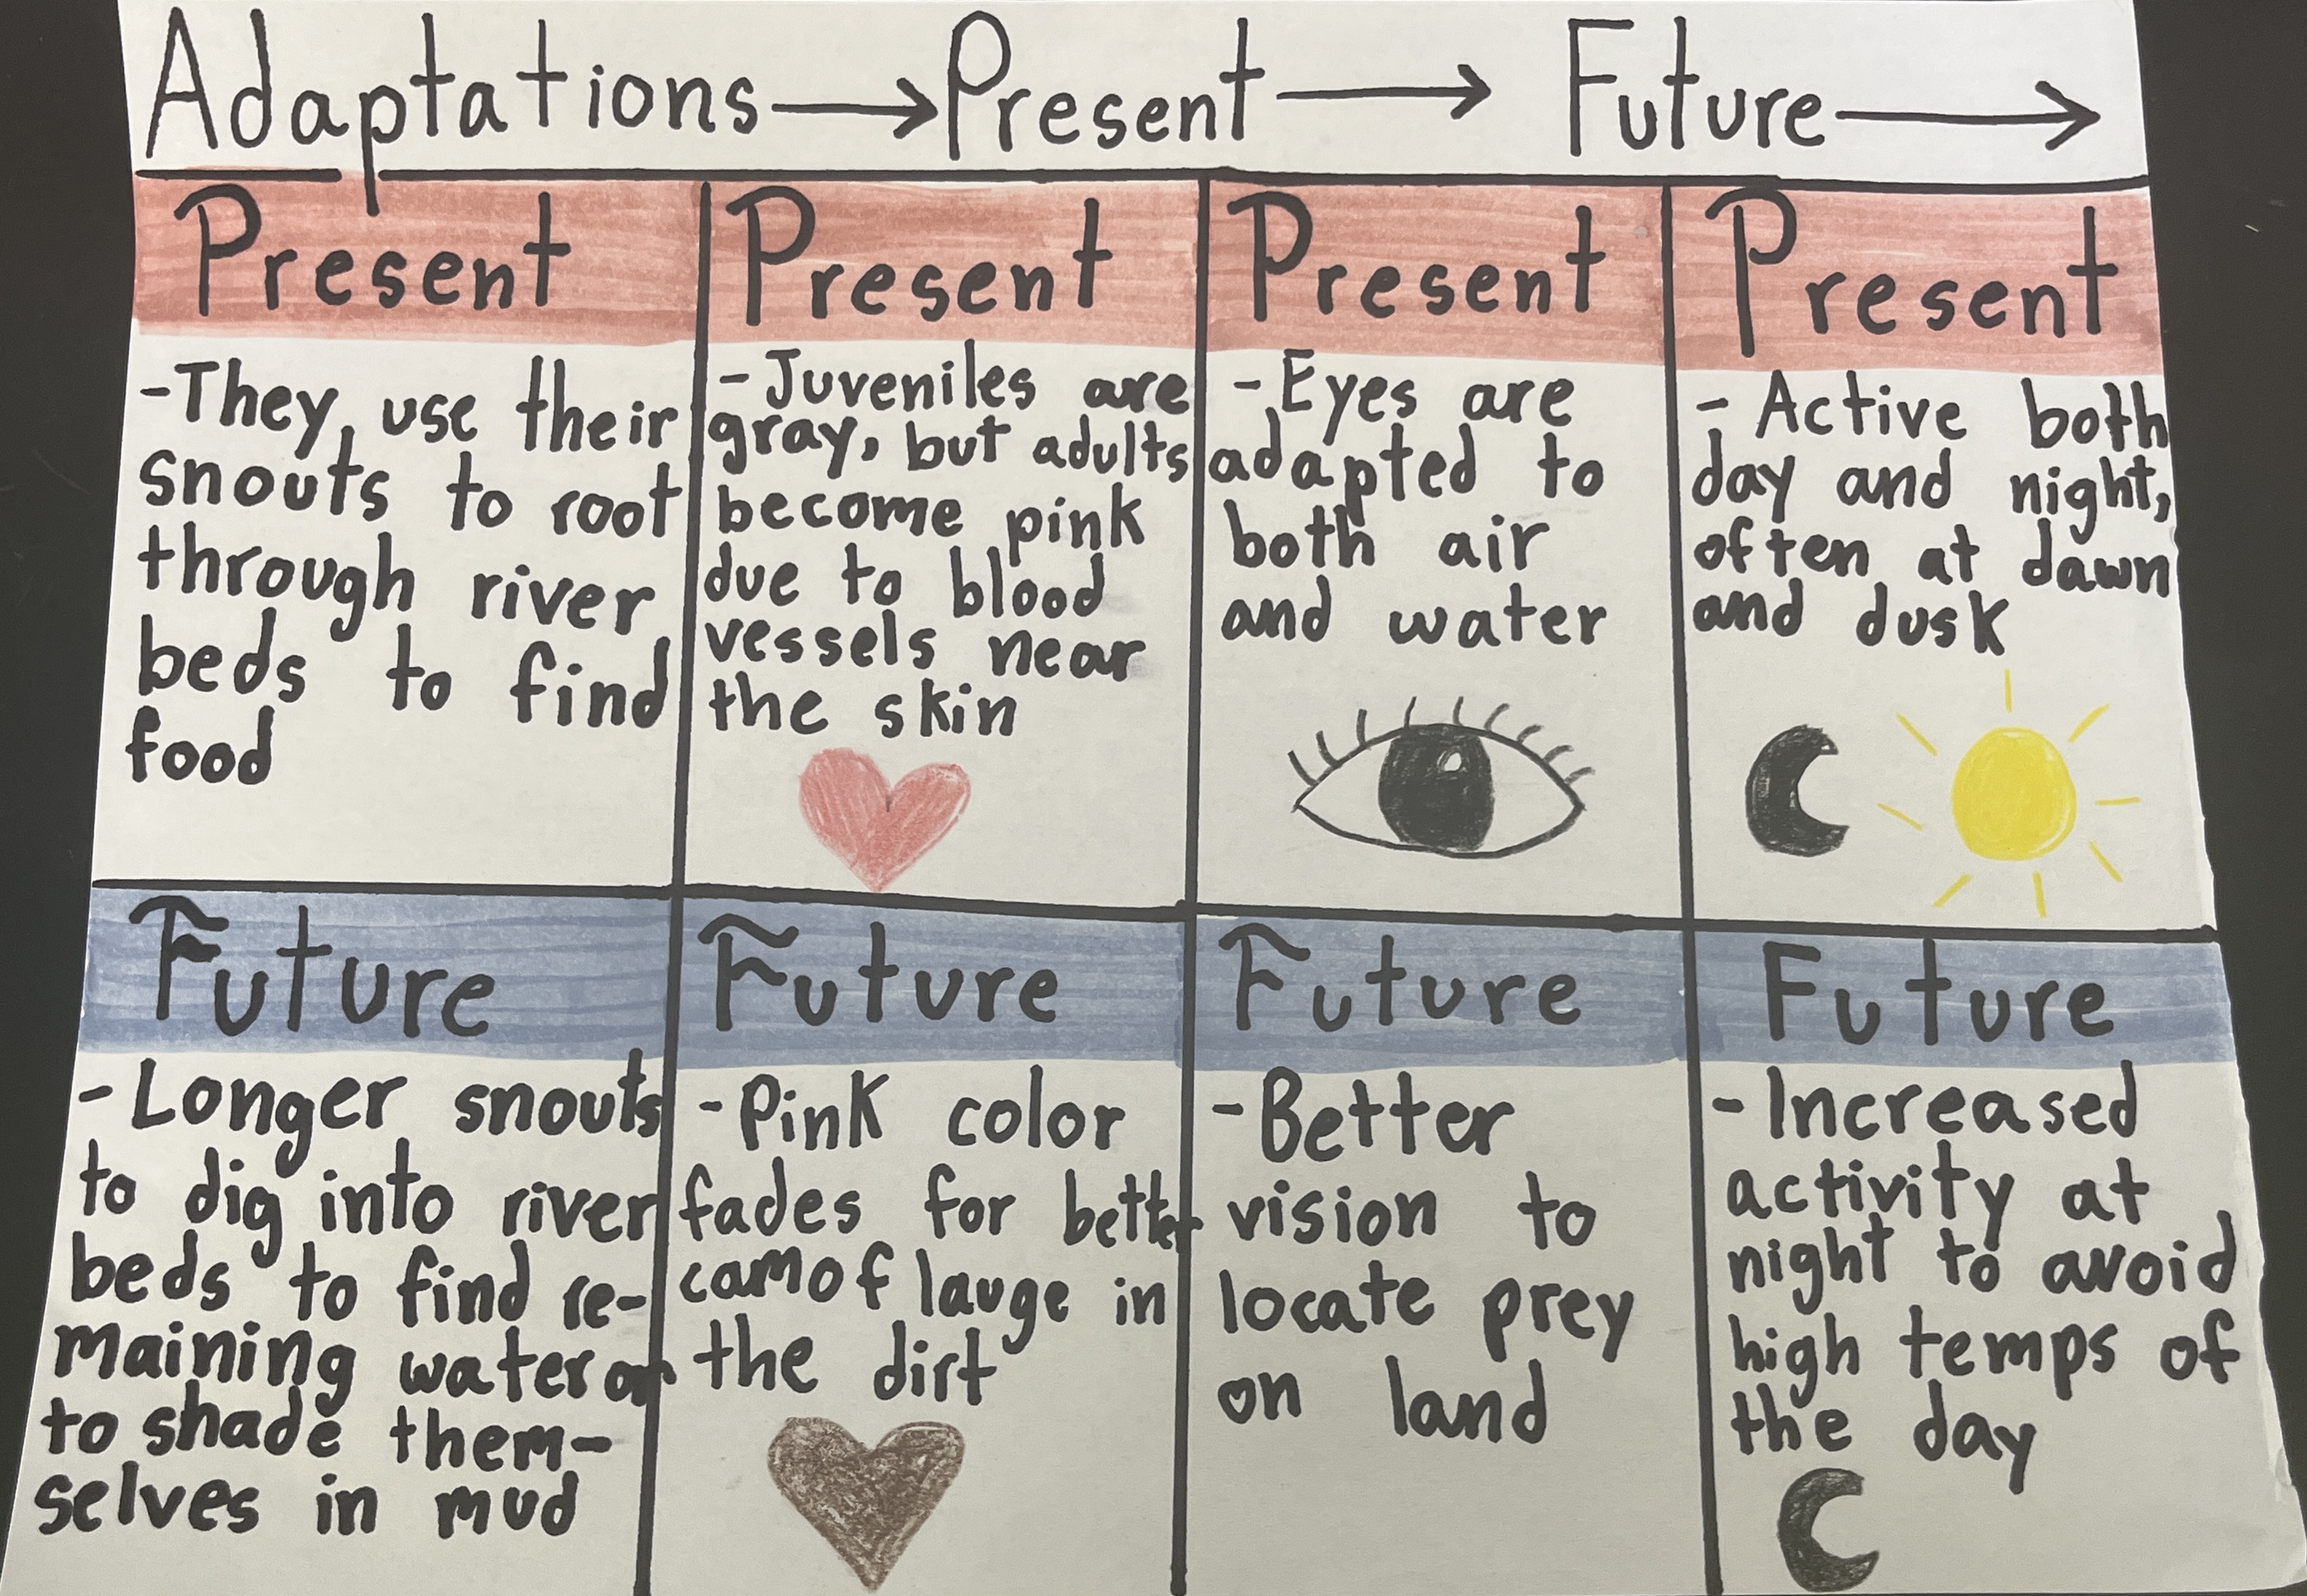 Adaptations → Present → Future →
Present
- They use their
snouts to root
through river
beds to find
food
Present
- Juveniles are
gray, but adults
become pink
due to blood
vessels near
the skin
Present
- Eyes are
adapted to
both air
and water
Present
- Active both
day and night,
often at dawn
and dusk
Future
- Longer snouts
to dig into river
beds to find re-
maining water or
to shade them-
selves in mud
Future
- Pink color
fades for better
camoflauge in
the dirt
Future
- Better
vision to
locate prey
on land
Future
- Increased
activity at
night to avoid
high temps of
the day